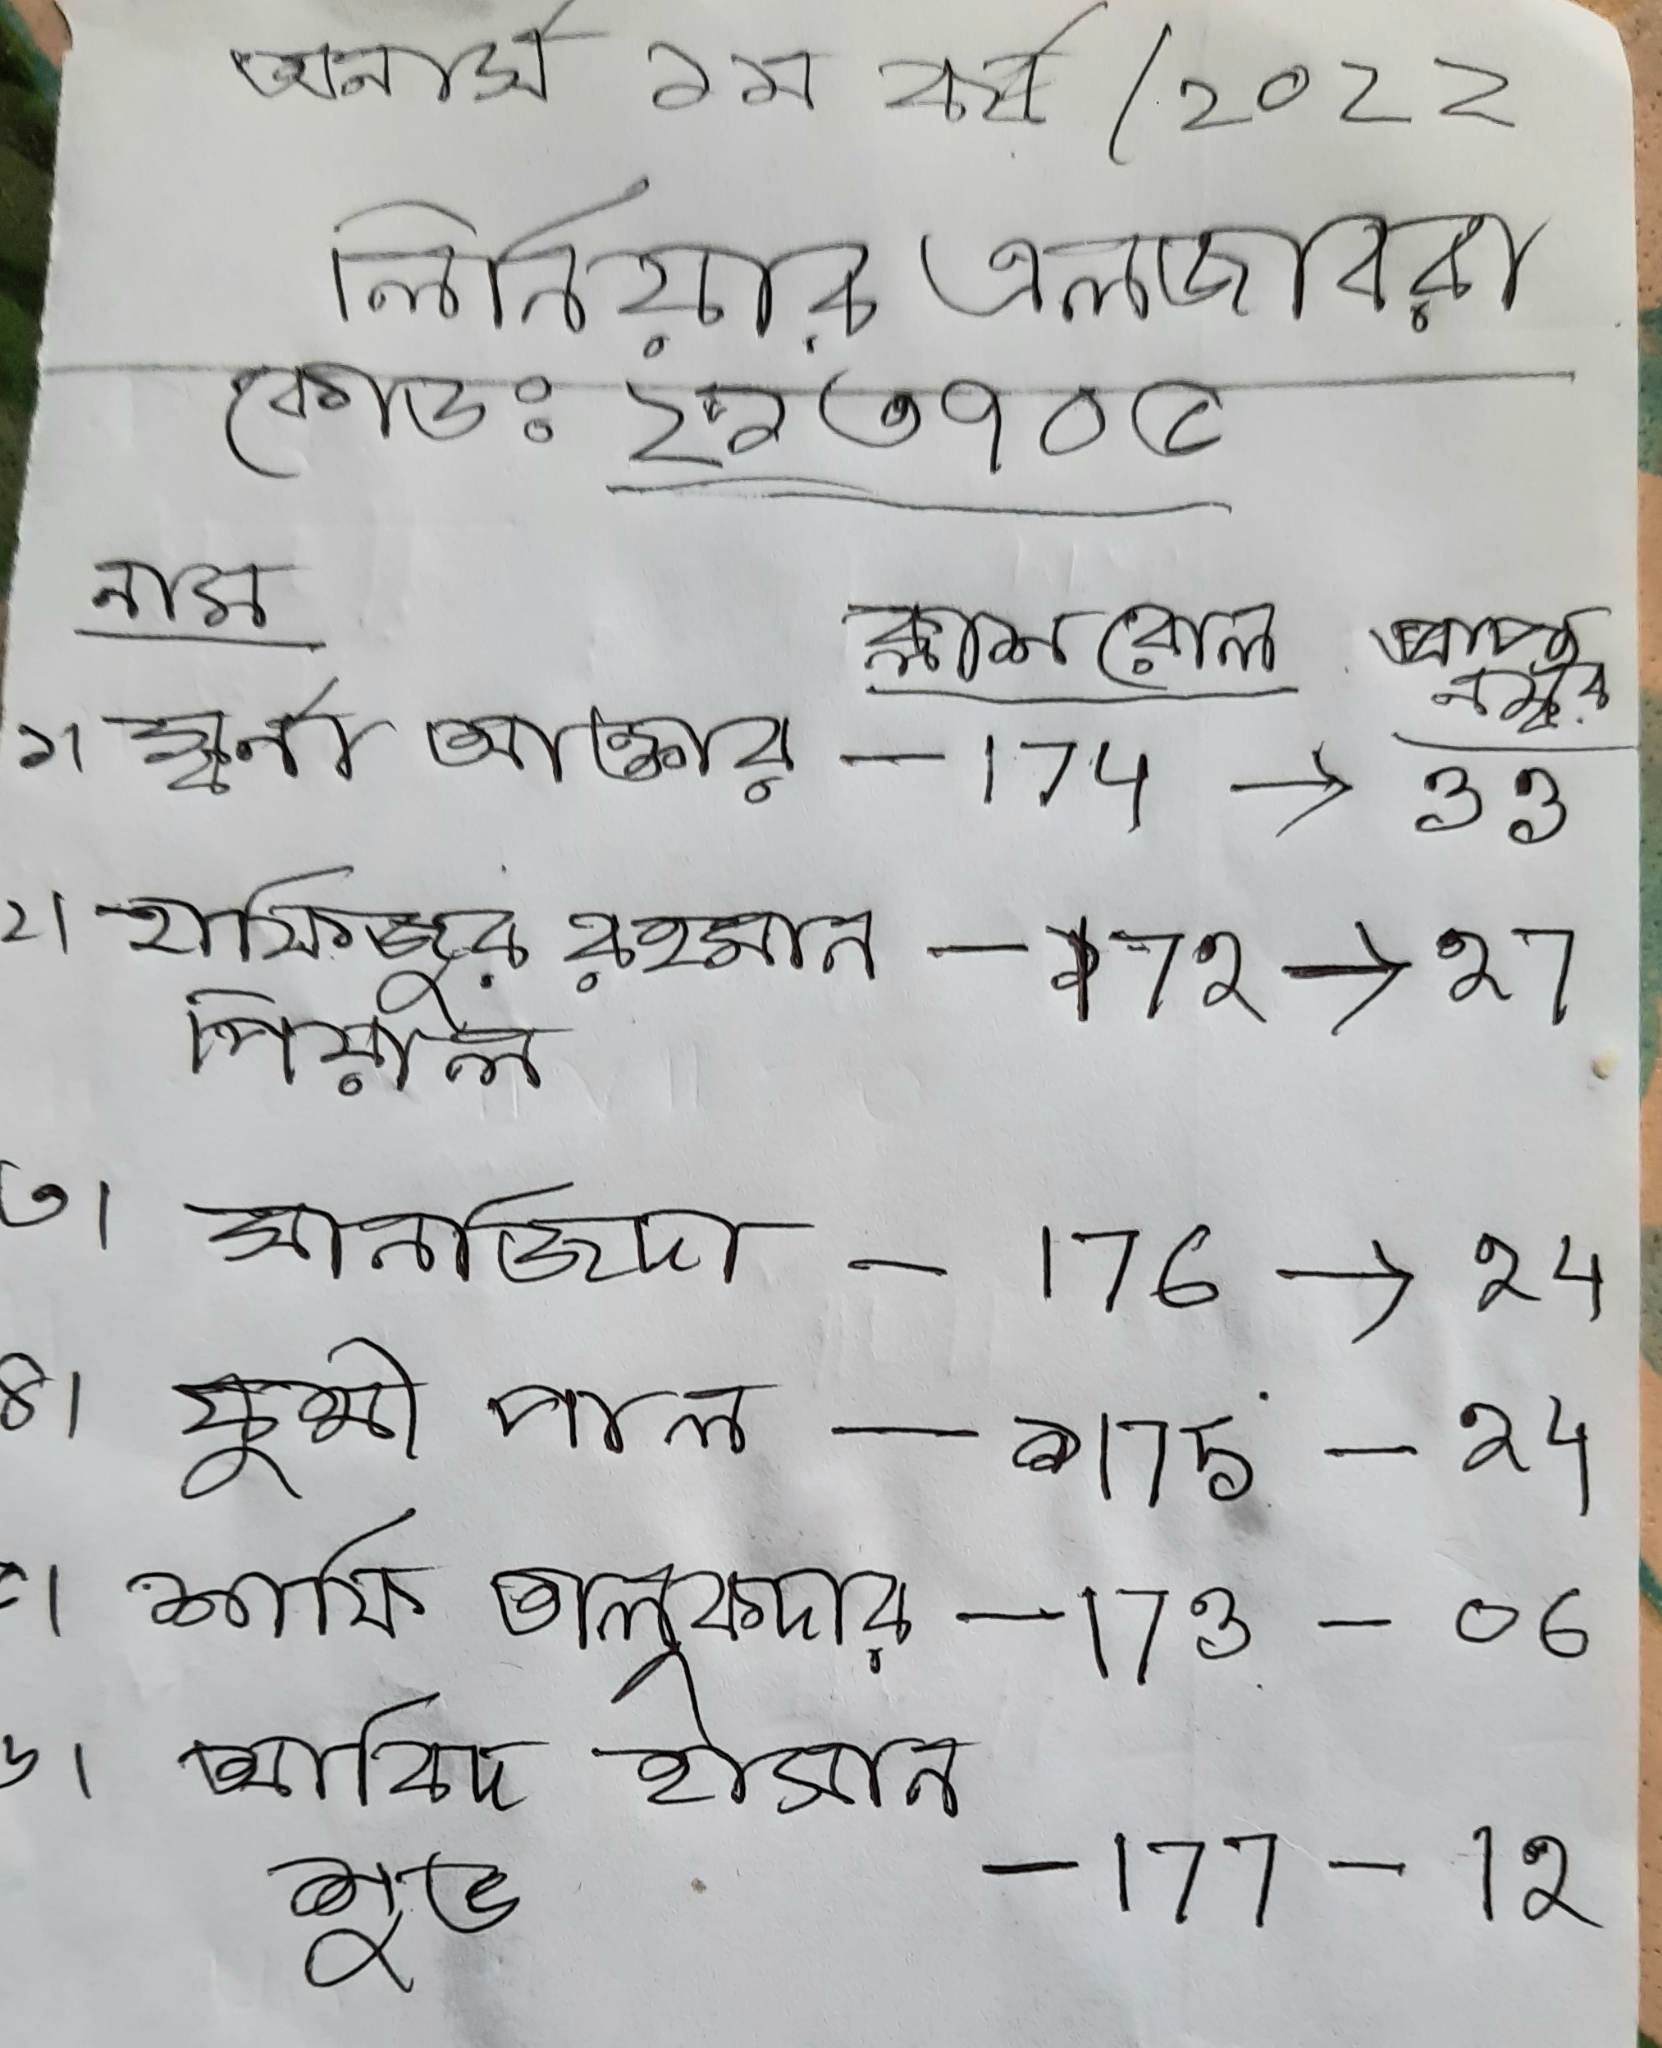 অনার্স ১ম বর্ষ /2022
লিনিয়ার এলজাবরা
কোড: ২২৩৭০৫
নাম
ক্লাশ রোল প্রাপ্ত নম্বর
১। স্বর্না আক্তার - 174 → 33
২। হাফিজুর রহমান - 172 → 27
পিয়াল
৩। সানজিদা - 176 → 24
৪। পাল - 175 - 24
৫। শাফি তালুকদার - 173 - 06
৬। আবিদ হাসান
শুভ - 177 - 12